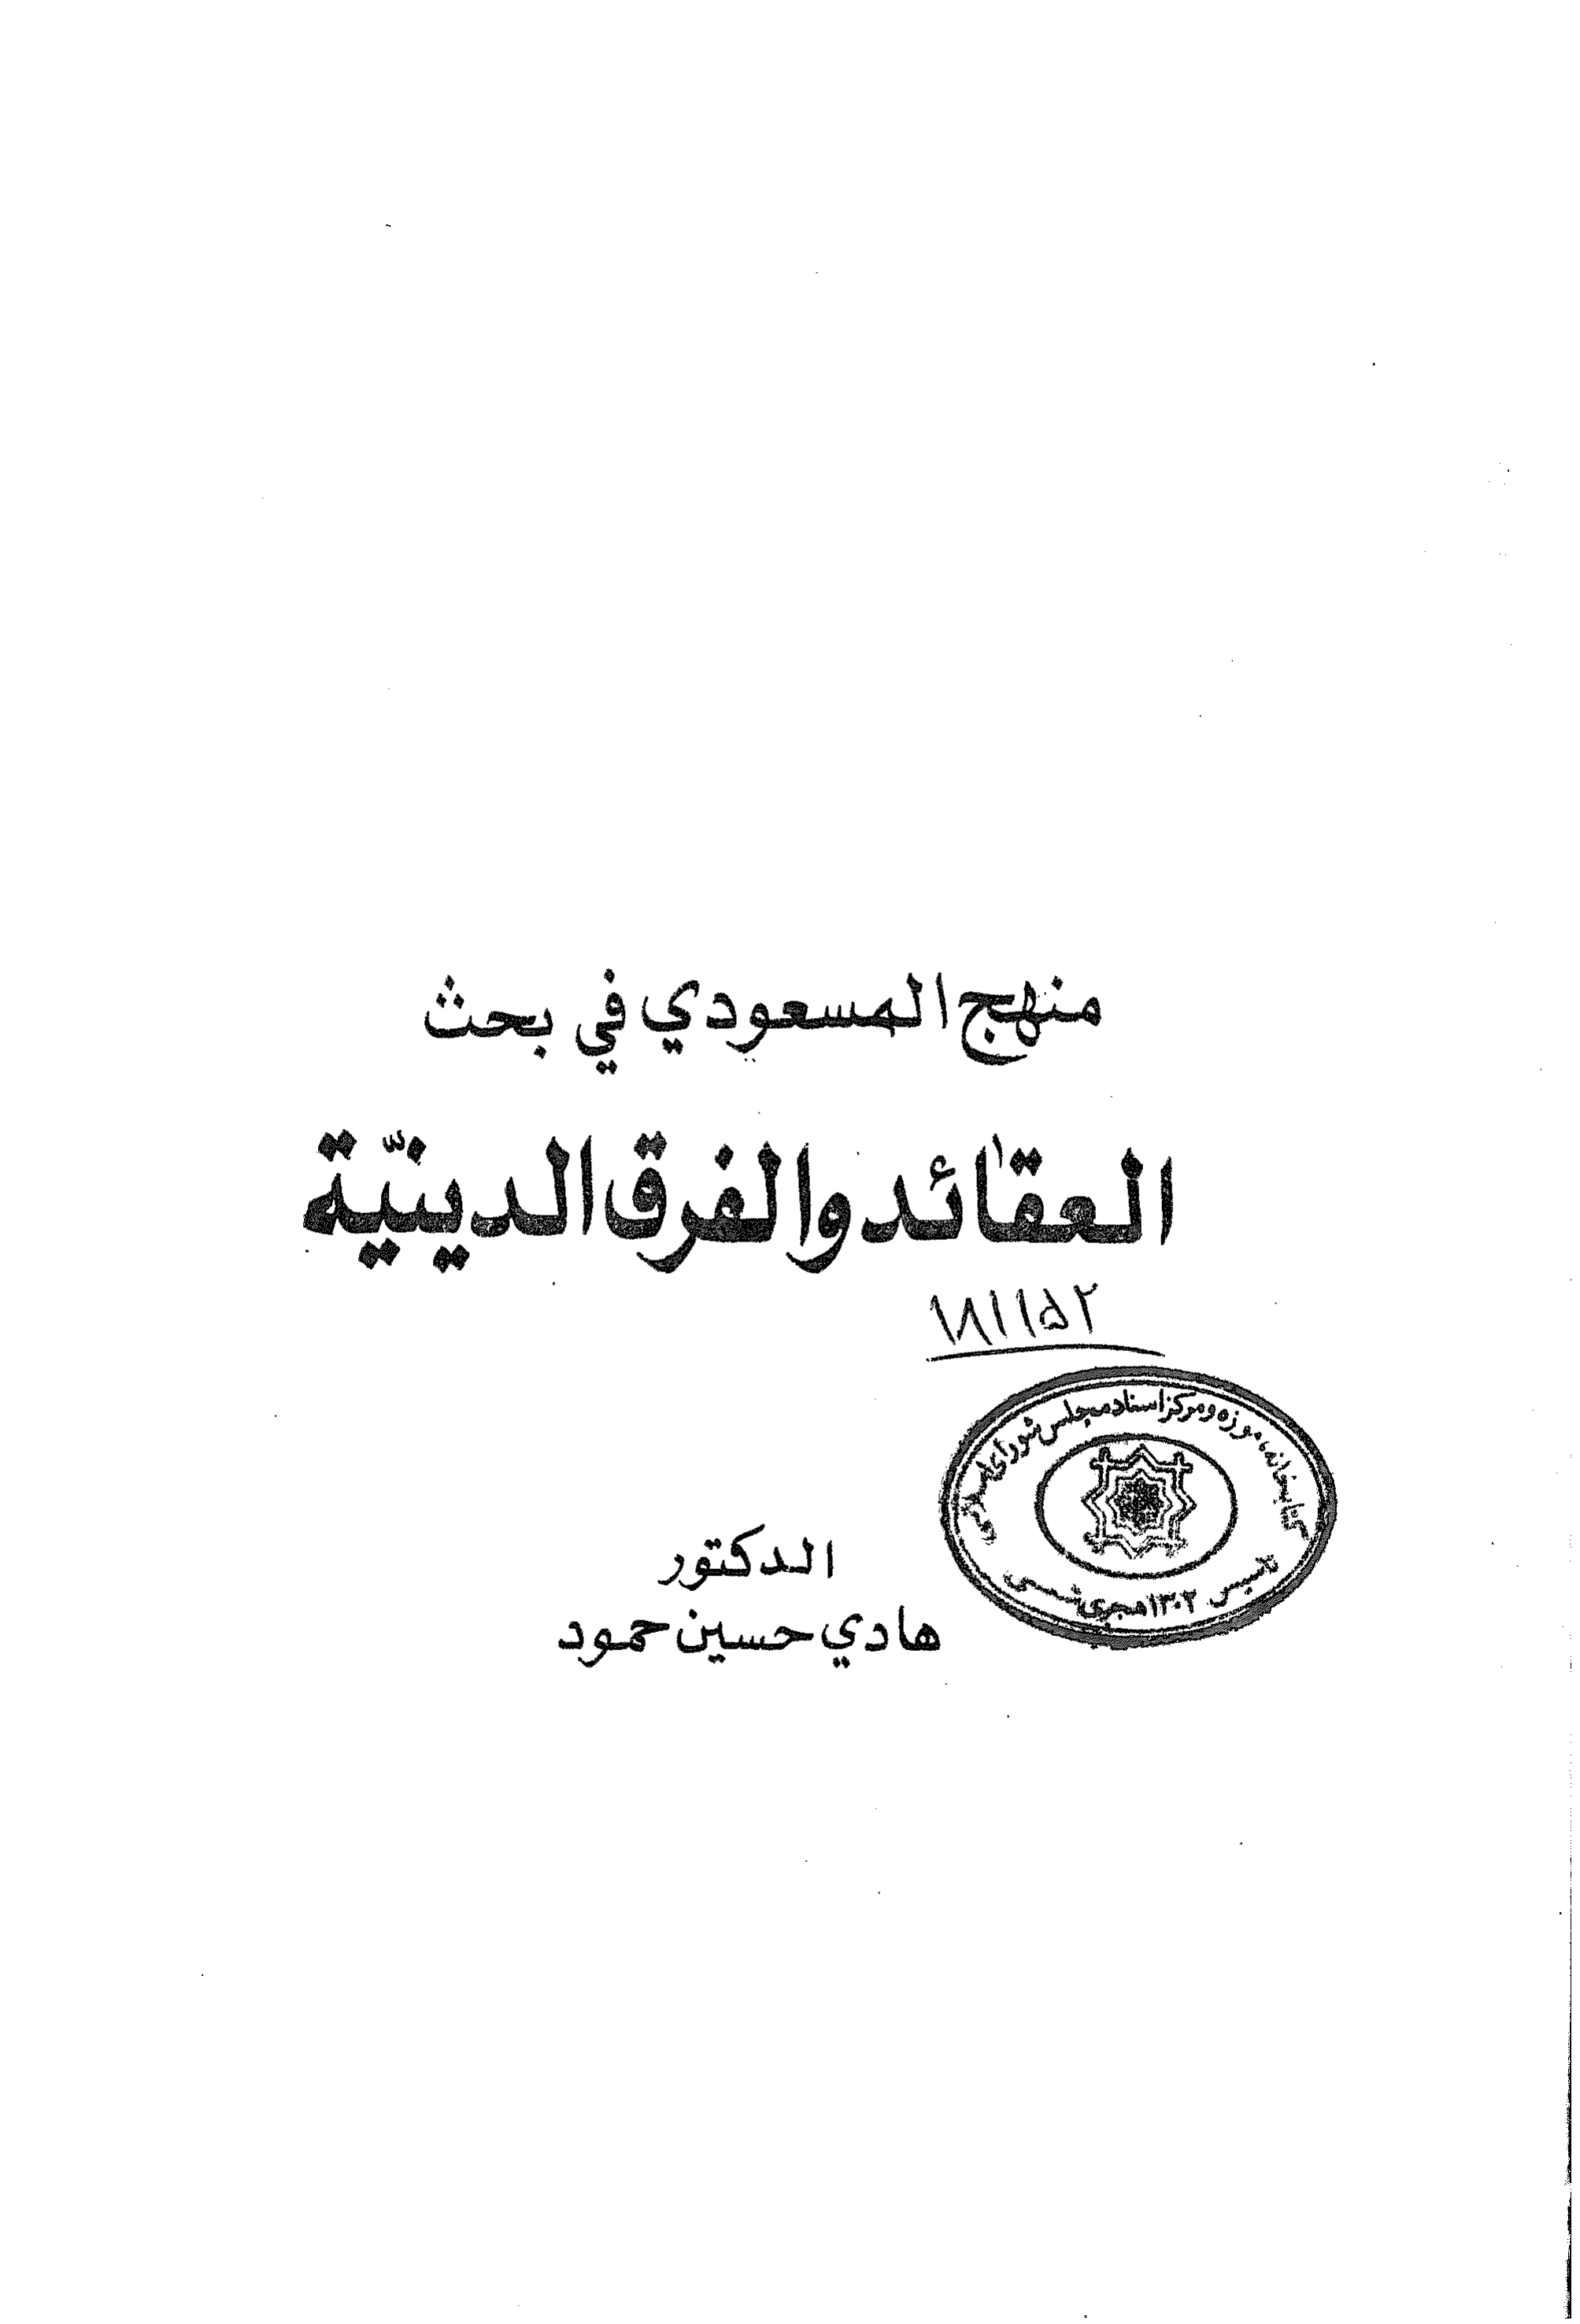 منهج المسعودي في بحث
العقائد والفرق الدينيّة
۱۸۱۱۵۲
كتابخانه، موزه و مركز اسناد مجلس شوراى اسلامى
تاسيس ۱۳۰۲ هجرى شمسى
الدكتور
هادي حسين حمود